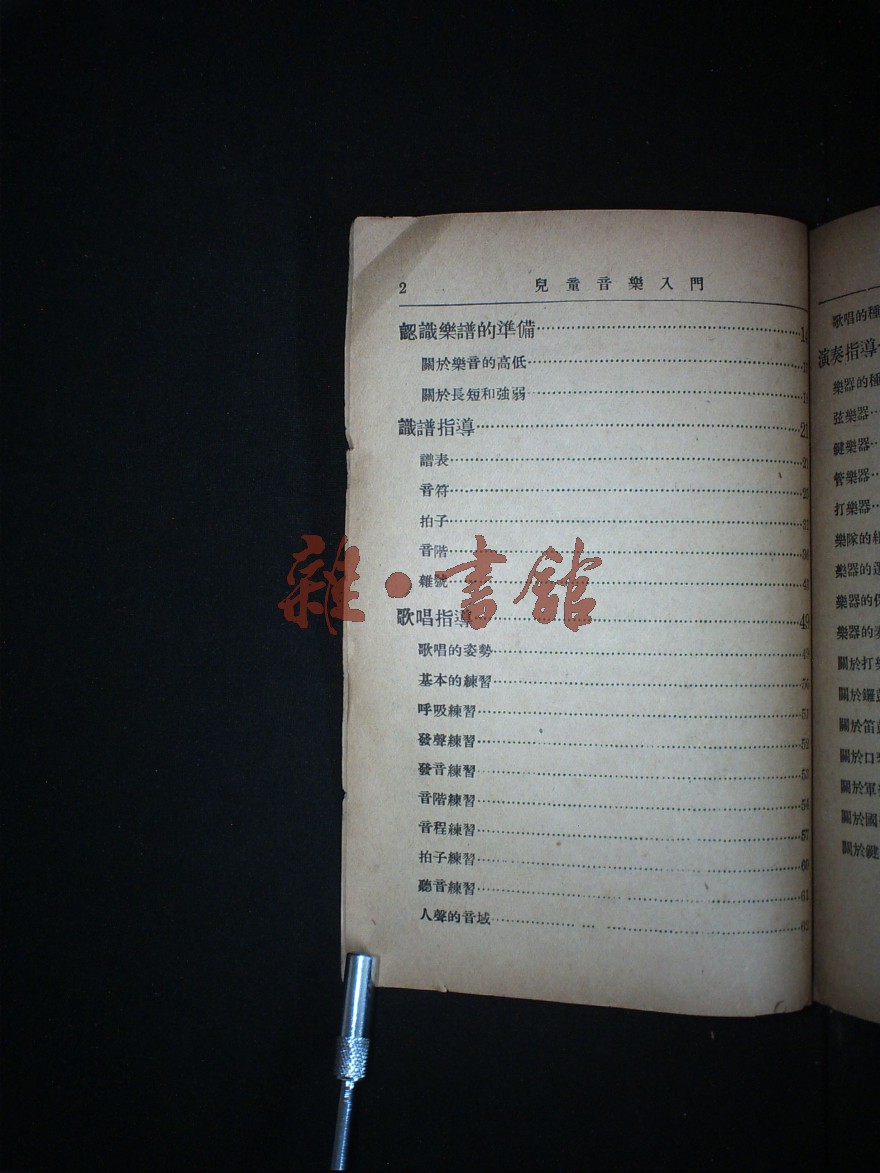 2 兒童音樂入門
認識樂譜的準備……14
關於樂音的高低……
關於長短和強弱……
識譜指導……21
譜表……21
音符……25
拍子……37
音階……38
雜號……
歌唱指導……49
歌唱的姿勢……49
基本的練習……50
呼吸練習……51
發聲練習……52
發音練習……53
音階練習……54
音程練習……57
拍子練習……60
聽音練習……61
人聲的音域……62
歌唱的種
演奏指導
樂器的種
弦樂器……
鍵樂器……
管樂器……
打樂器……
樂隊的
樂器的
樂器的
樂器的
關於打
關於鑼
關於笛
關於口
關於軍
關於國
關於鍵
雜·書館